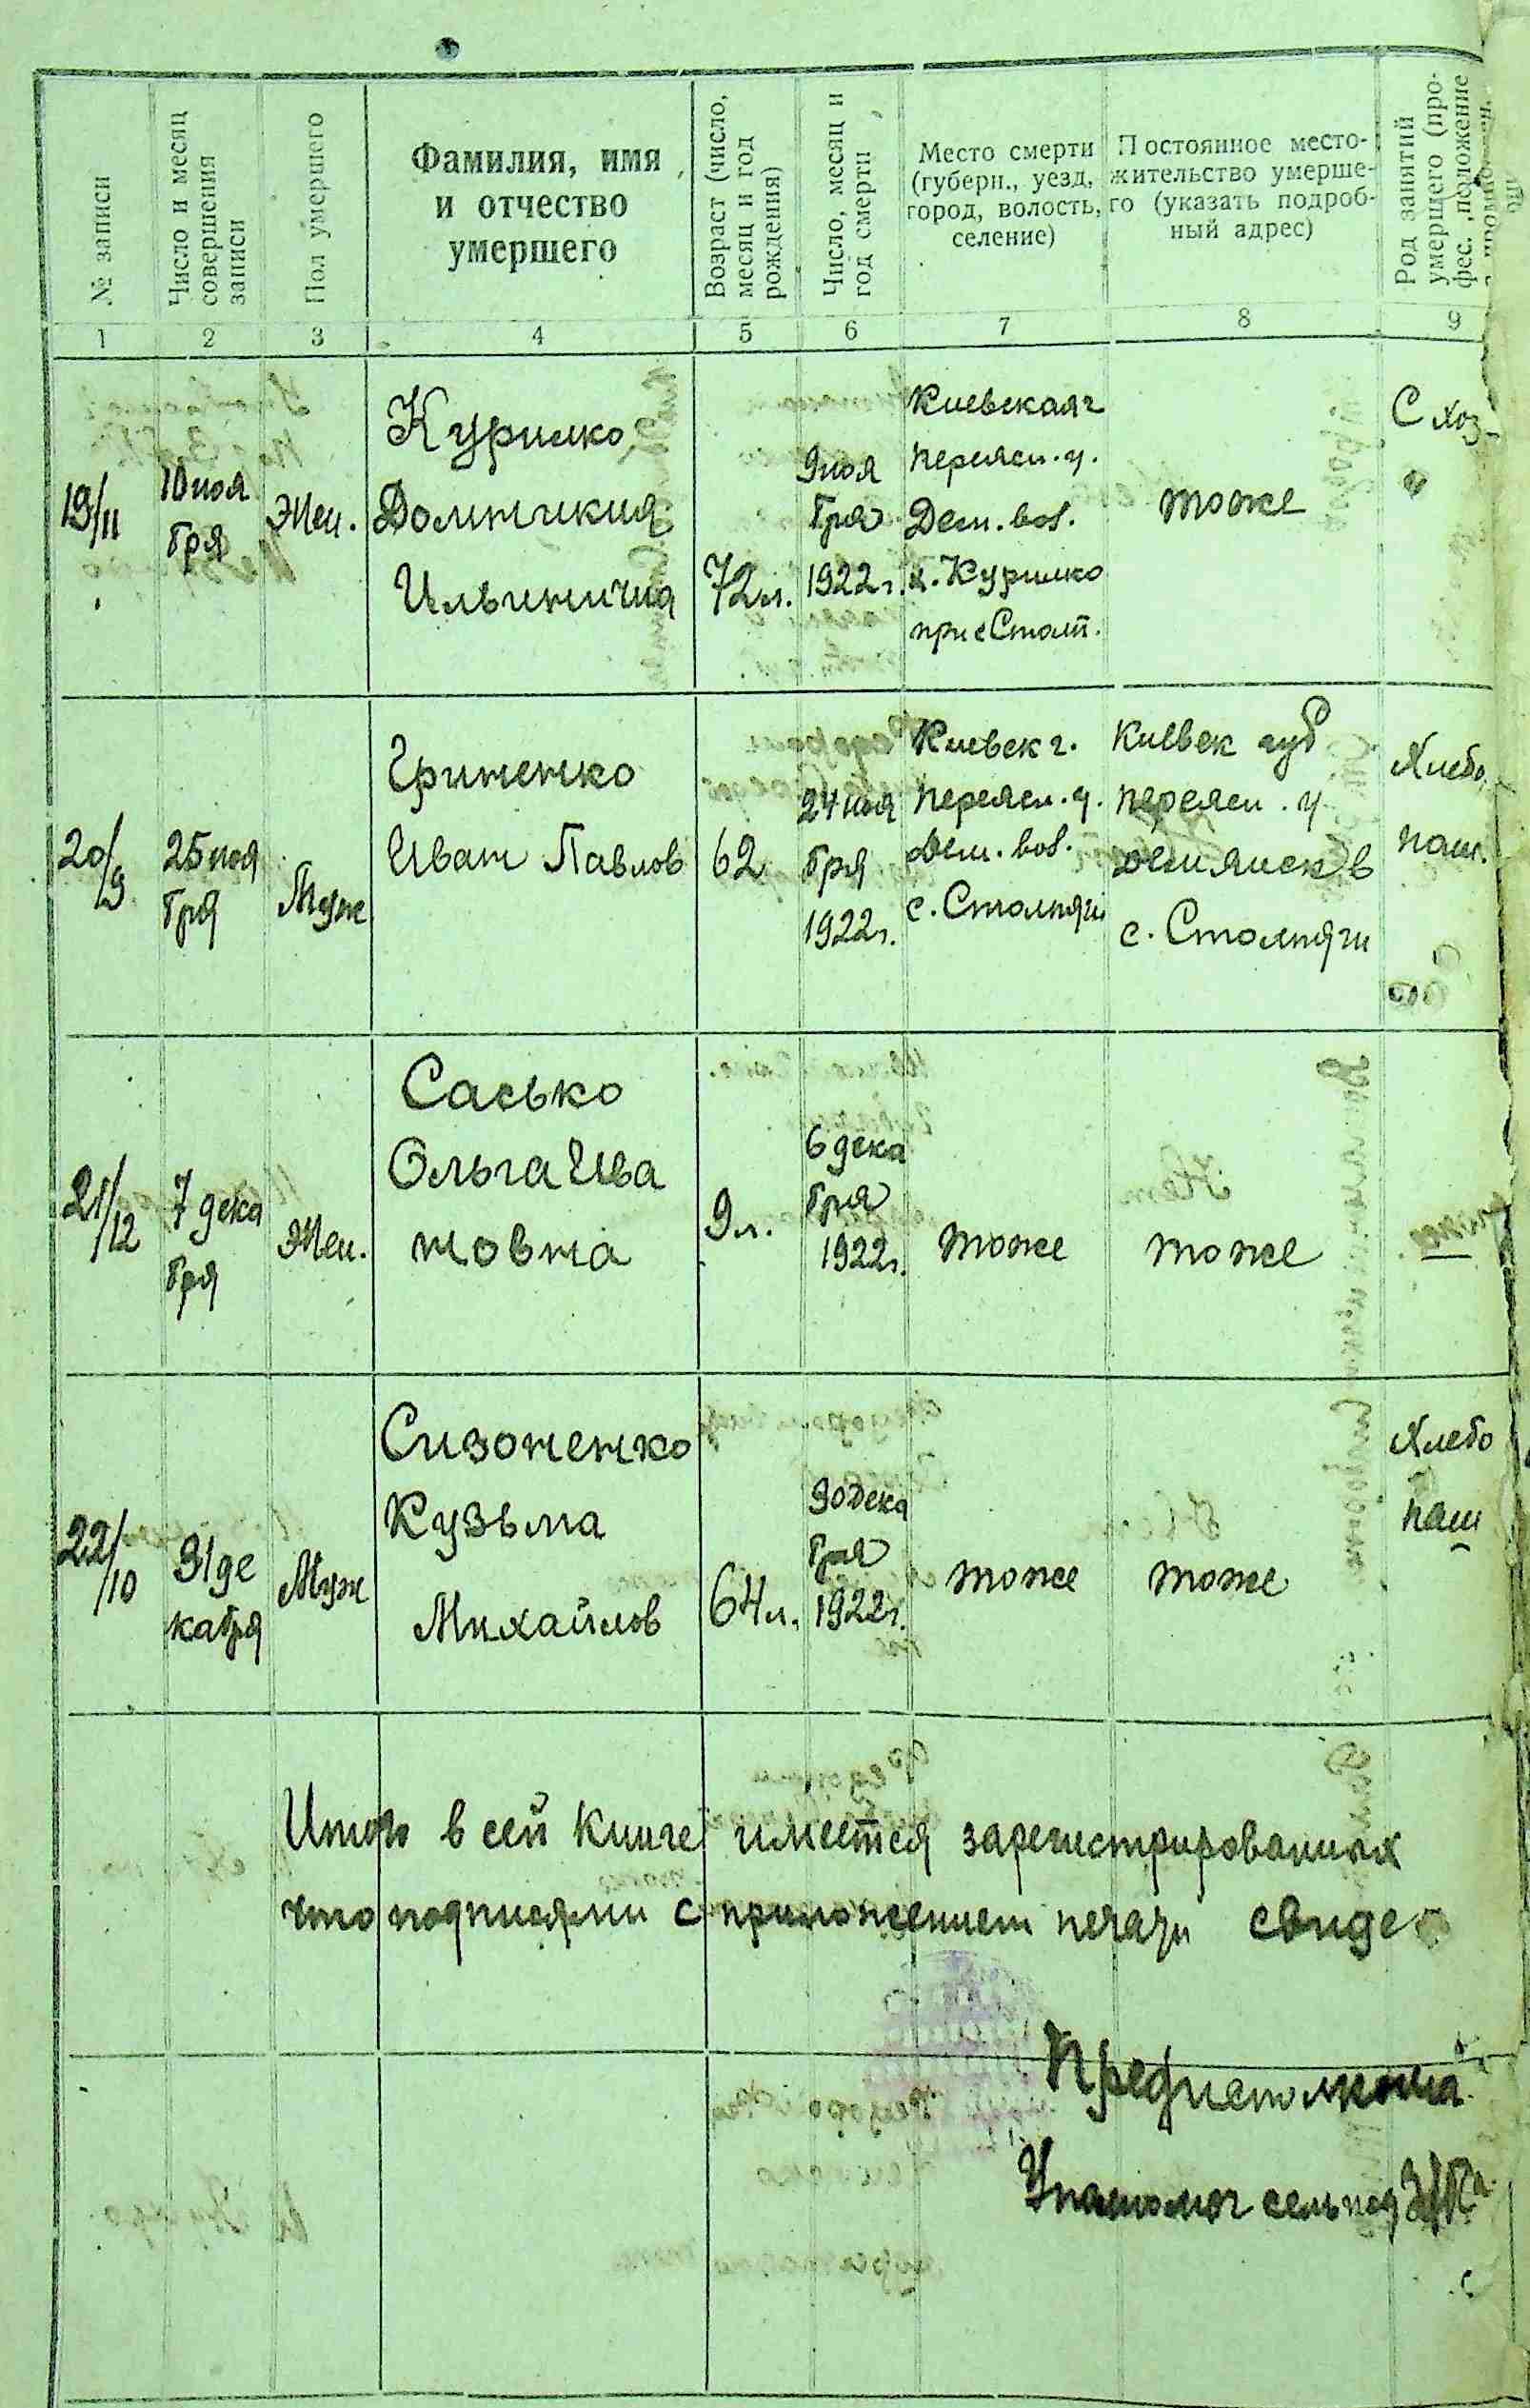 № записи
Число и месяц
совершения
записи
Пол умершего
Фамилия, имя
и отчество
умершего
Возраст (число,
месяц и год
рождения)
Число, месяц и
год смерти
Место смерти
(губерн., уезд,
город, волость,
селение)
Постоянное место-
жительство умерше-
го (указать подроб-
ный адрес)
Род занятий
умершего (про-
фес., положение
1 2 3 4 5 6 7 8 9
19/11
10 ноя
бря
Жен.
Курилко
Домникия
Ильинична
72 л.
9 ноя
бря
1922 г.
Киевская г
переясл. у.
Дем. вол.
х. Курилко
при с Столп.
тоже
С хоз.
20/9
25 ноя
бря
Муж
Гриненко
Иван Павлов
62
24 ноя
бря
1922 г.
Киевск г.
переясл. у.
Дем. вол.
с. Столпяги
Киевск губ
переясл. у
демянск в
с. Столпяги
Хлебо
паш.
21/12
7 дека
бря
Жен.
Сасько
Ольга Ива
новна
9 л.
6 дека
бря
1922 г.
тоже
тоже
22/10
31 де
кабря
Муж
Сизоненко
Кузьма
Михайлов
64 л.
30 дека
бря
1922 г.
тоже
тоже
Хлебо
паш
Итого в сей книге имеется зарегистрированных
что подписями с приложением печати свиде